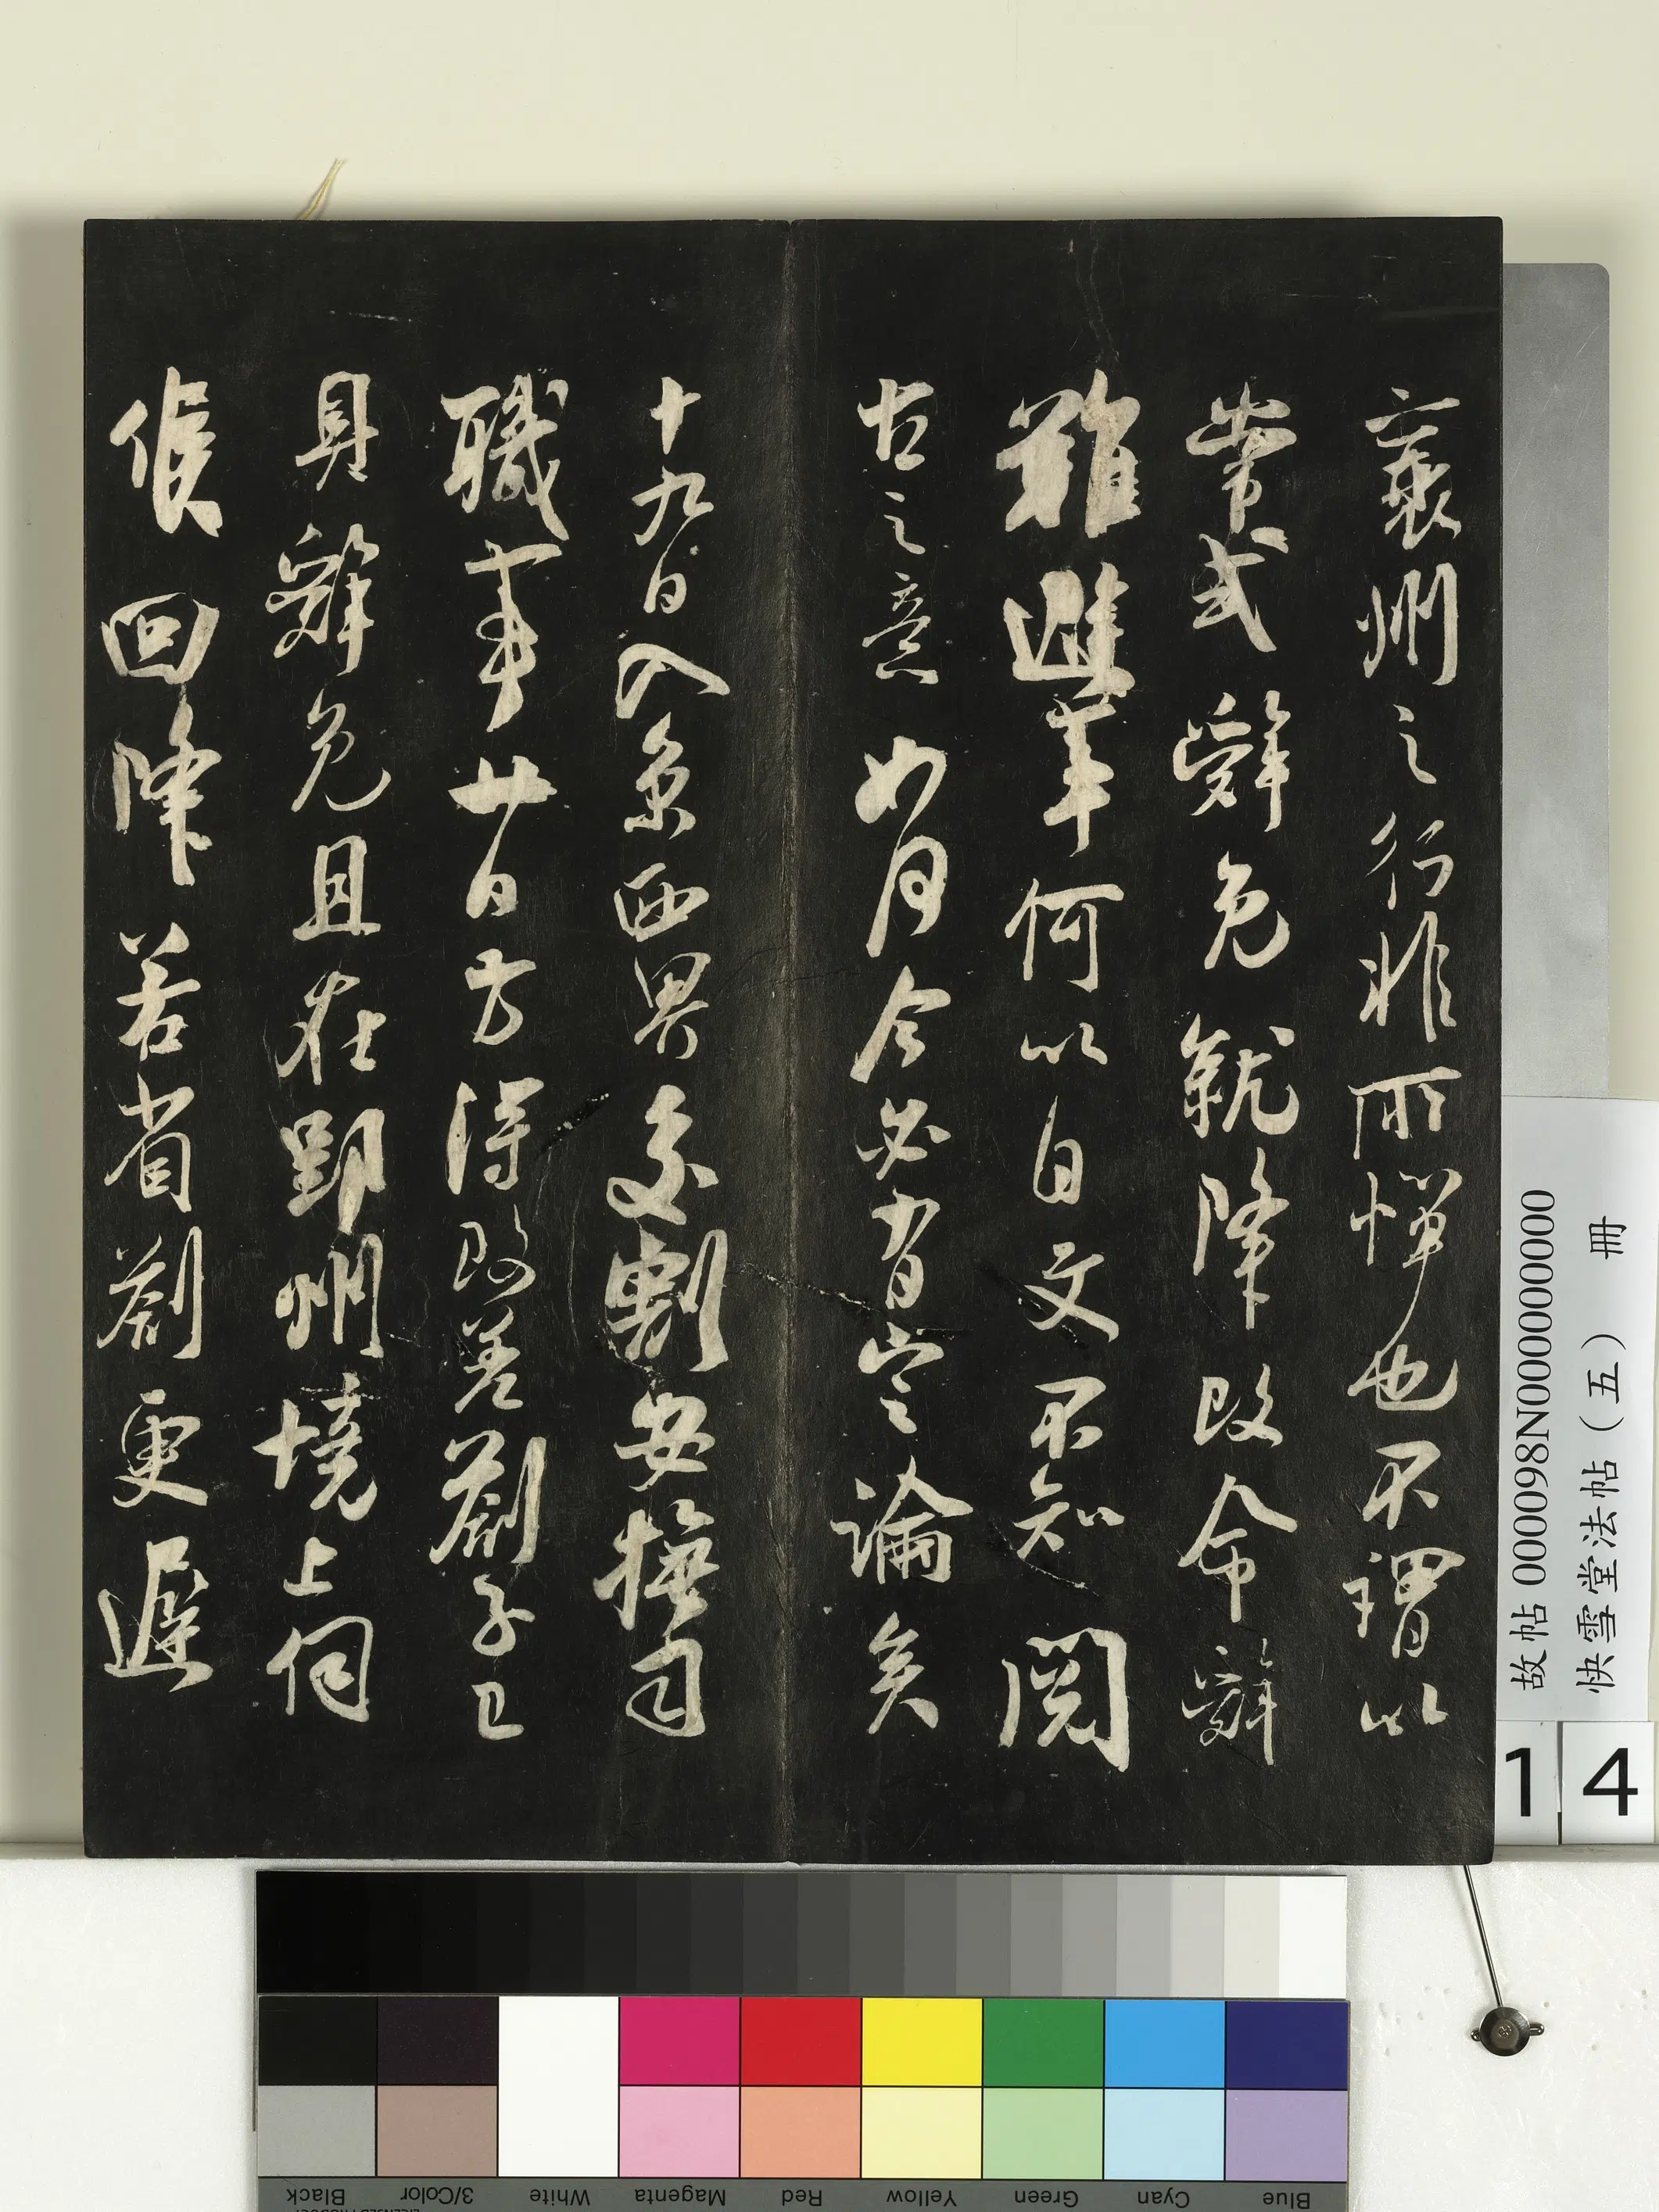 襄州之行非所憚也不謂以
常式辭免就降改命辭
難避事何以自文不知閱
古之意如何今必有定論矣
十九日入京西界交割安撫司
職事廿日方得改差劄子已
具辭免且在郢州境上伺
候回降若省劄更遲
故帖 000098N000000000
快雪堂法帖（五） 冊
14
Black
3/Color
White
Magenta
Red
Yellow
Green
Cyan
Blue